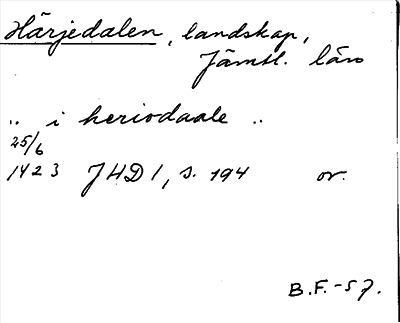 Härjedalen, landskap,
Jämtl. län
.. i heriodaale ..
25/6
1423 JHD 1, s. 194 or.
B.F.-57.